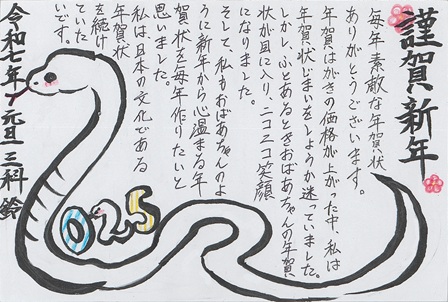 謹賀新年
毎年素敵な年賀状
ありがとうございます。
年賀はがきの価格が上がった中、私は
年賀状じまいをしようか迷っていました。
しかし、ふとあるときおばあちゃんの年賀
状が目に入り、ニコニコ笑顔
になりました。
そして、私もおばあちゃんのよ
うに新年から心温まる年
賀状を毎年作りたいと
思いました。
私は日本の文化である
年賀状
を続け
ていた
いです。
令和七年 元旦 三科 鈴
025